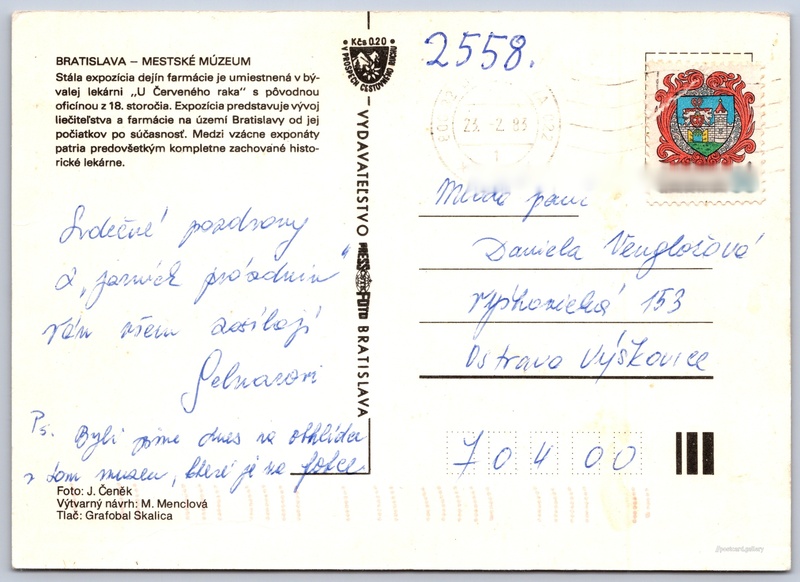 BRATISLAVA – MESTSKÉ MÚZEUM
Stála expozícia dejín farmácie je umiestnená v bý-
valej lekárni „U Červeného raka“ s pôvodnou
oficínou z 18. storočia. Expozícia predstavuje vývoj
liečiteľstva a farmácie na území Bratislavy od jej
počiatkov po súčasnosť. Medzi vzácne exponáty
patria predovšetkým kompletne zachované histo-
rické lekárne.
Srdečné pozdravy
z „jarních prázdnin“
Vám všem zasílají
Ps. Byli jsme dnes na obhlídce
v tom muzeu, které je na fotce
Foto: J. Čeněk
Výtvarný návrh: M. Menclová
Tlač: Grafobal Skalica
Kčs 0.20
V PROSPECH CESTOVNÉHO RUCHU
VYDAVATEĽSTVO PRESSFOTO BRATISLAVA
2558.
23. 2. 83
1
Mladá paní
Daniela Venglořová
Výškovická 153
Ostrava Výškovice
704 00
postcard.gallery